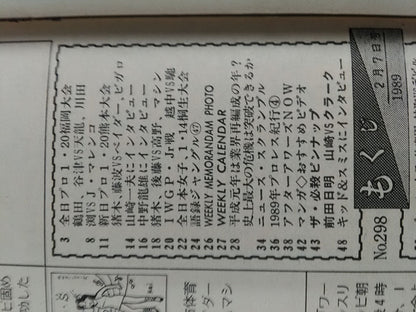 もくじ
2月7日号
1989
No.298
3 全日プロ1・20福岡大会
鶴田、谷津VS天龍、川田
8 渕VSJ・マレンコ
11 新日プロ1・20熊本大会
猪木、藤波VSベイダー、ビガロ
14 山崎一夫にインタビュー
16 中野龍雄にインタビュー
18 猪木、後藤VS高野、マシン
20 NWGPJr.戦 越中VS馳
22 全日本女子・1・14桐生大会
24 語録ジャングル㊼
26 WEEKLY MEMORANDAM PHOTO
27 WEEKLY CALENDAR
28 平成元年は業界再編成の年?
史上最大の危機は突破できるか
34 ニュース・スクランブル
36 1989年プロレス紀行④
38 アフターアワーズNOW
42 マンガ◇おすすめビデオ
43 ザ・必殺ピンナップ
前田日明 山崎VSクラーク
48 キッド&スミスにインタビュー